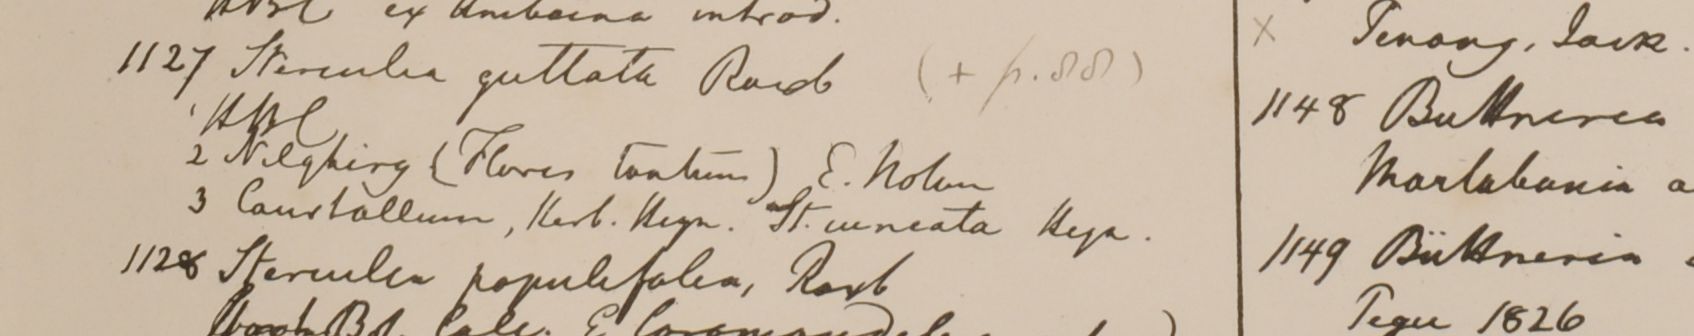 HBC ex Amboina introd.
1127 Sterculia guttata Roxb (+ p. 88)
1 HBC
2 Nilghiry (Flores tantum) E. Noton
3 Courtallum, Herb. Heyn. "St. cuneata Heyn.
1128 Sterculia populifolia, Roxb
Hort Bot Calc. E Coromandelia
x Penang, Jack.
1148 Buttneria
Martabania
1149 Büttneria
Tegu 1826